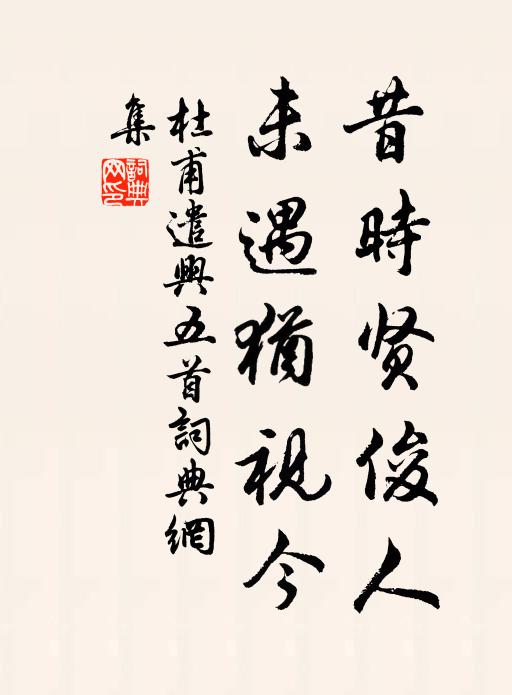 昔時贤俊人
未遇猶視今
杜甫遣興五首詞典網
集
詞典網印